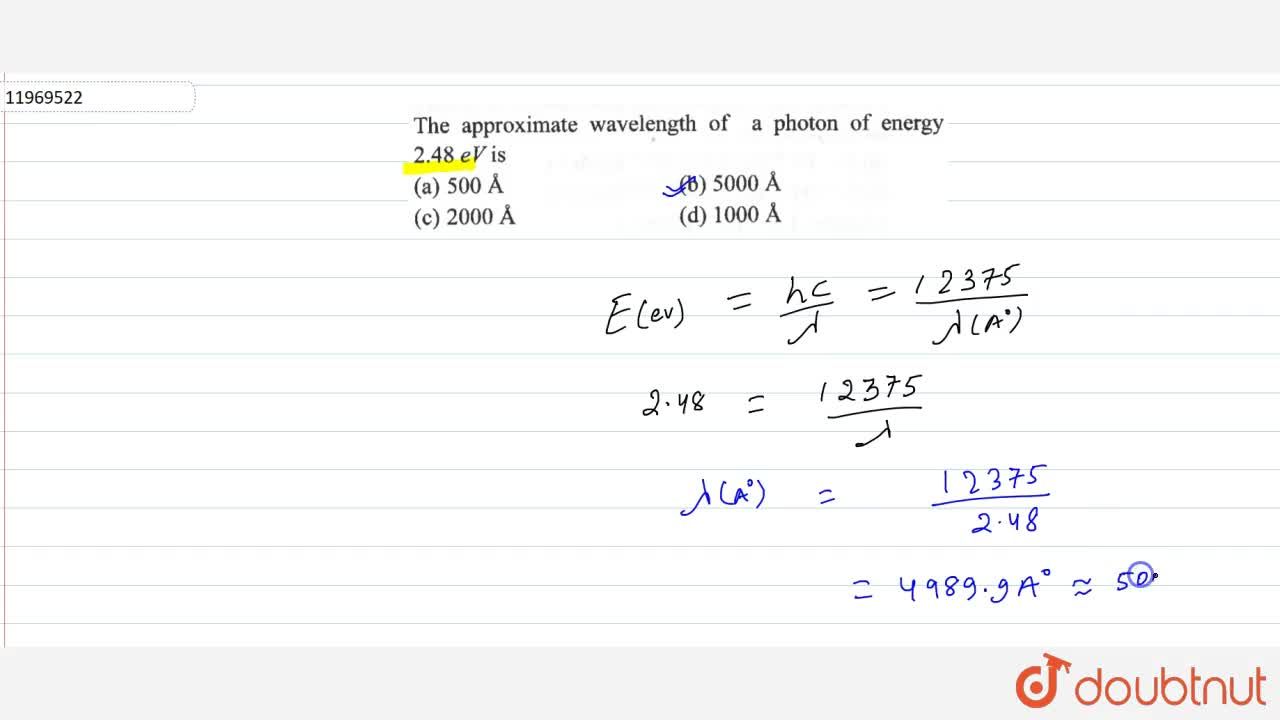 11969522
The approximate wavelength of a photon of energy
2.48 eV is
(a) 500 Å (b) 5000 Å
(c) 2000 Å (d) 1000 Å
E(ev) = hc/λ = 12375/λ(A°)
2.48 = 12375/λ
λ(A°) = 12375/2.48
= 4989.9 A° ≈ 50
doubtnut